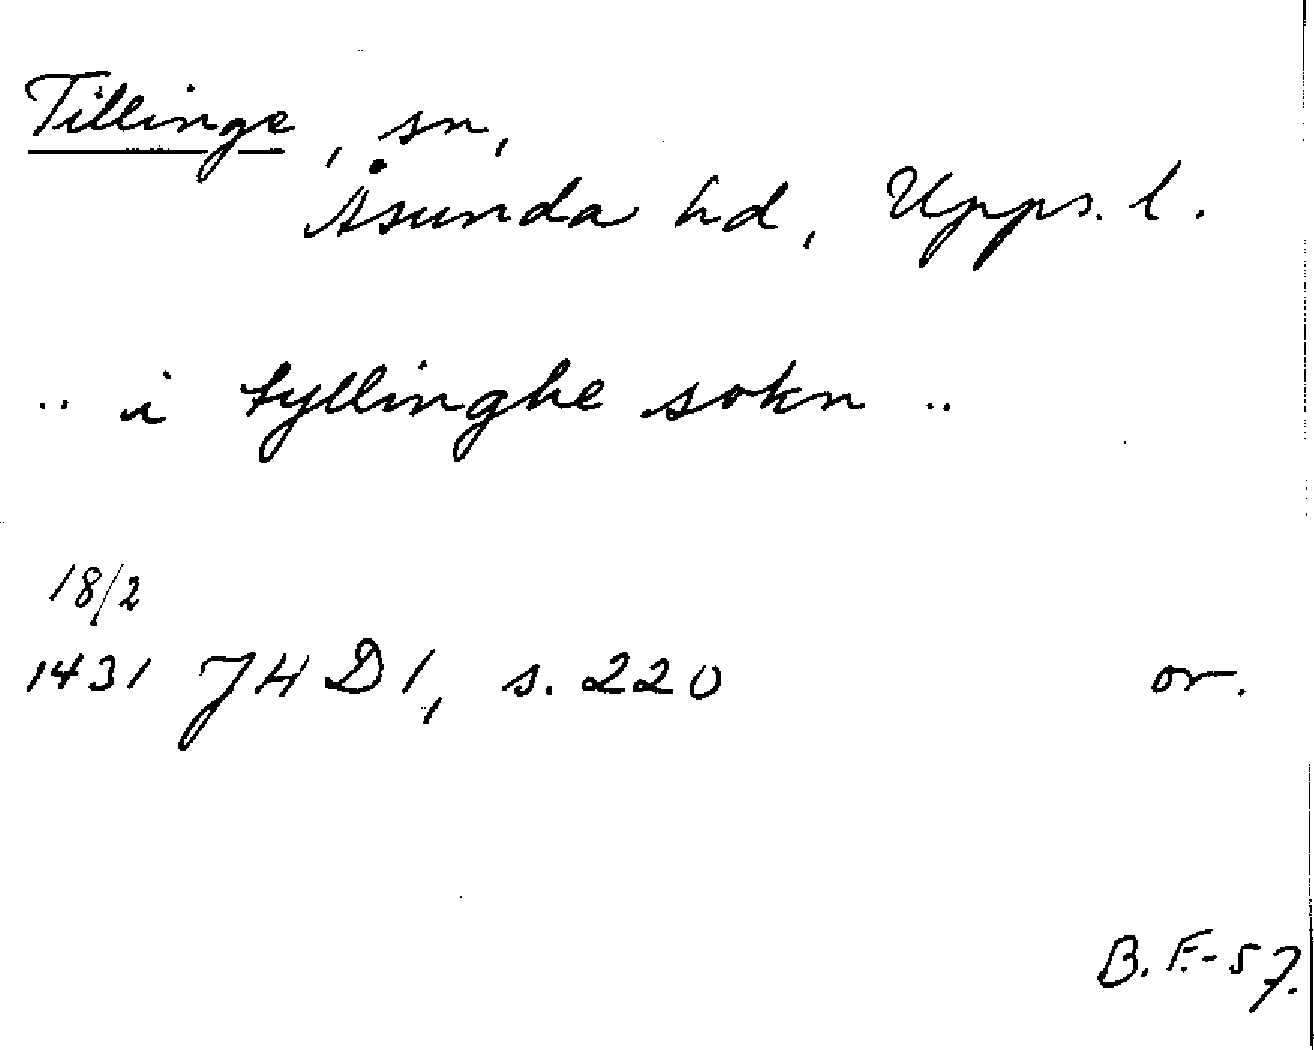 Tillinge, sn,
Åsunda hd, Upps. l.
.. i tyllinghe sokn ..
18/2
1431 JHD1, s. 220 or.
B.F.-57.